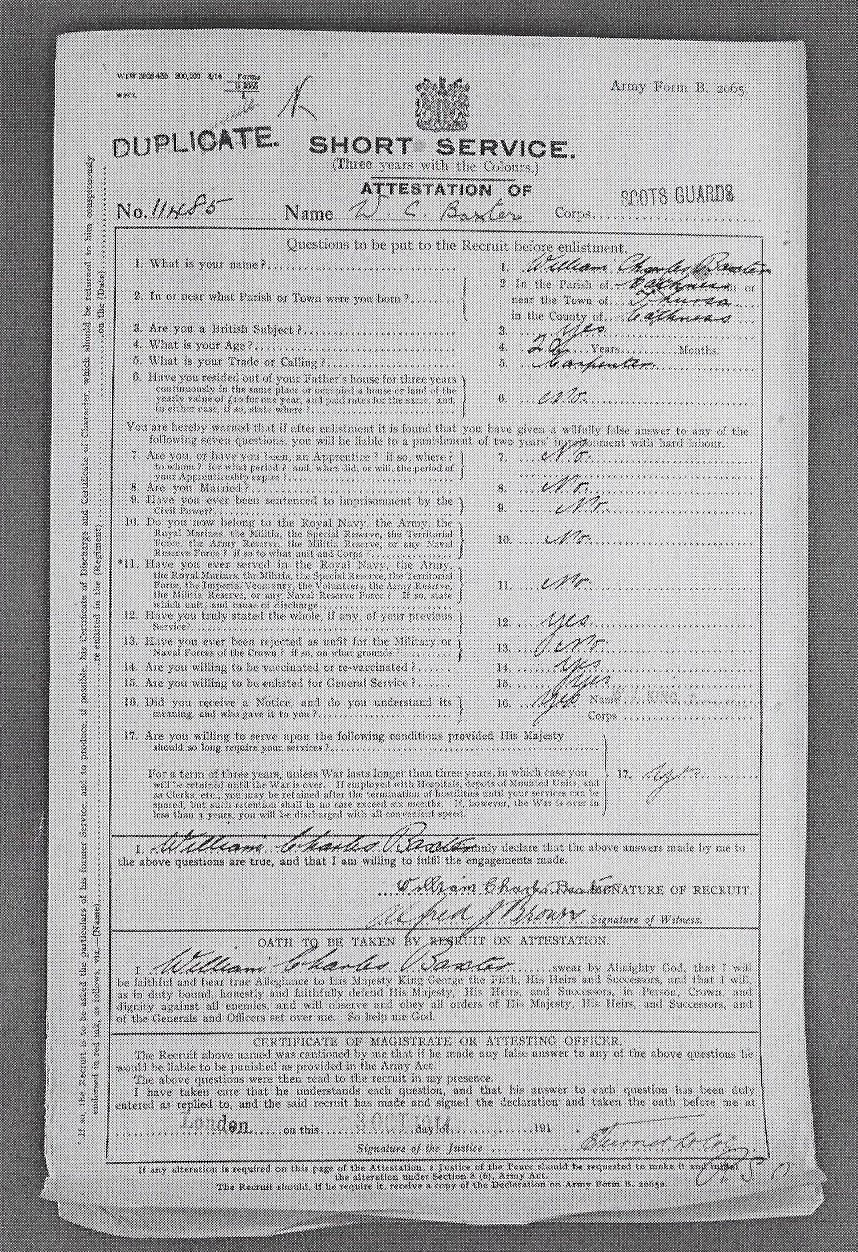 Army Form B. 2065.
DUPLICATE.
SHORT SERVICE.
(Three years with the Colours.)
ATTESTATION OF
No. 11485 Name W C. Baxter Corps SCOTS GUARDS
Questions to be put to the Recruit before enlistment.
1. What is your name? 1. William Charles Baxter
2. In or near what Parish or Town were you born? 2 In the Parish of or
near the Town of Thurso
in the County of Caithness
3. Are you a British Subject? 3. Yes
4. What is your Age? 4. Years Months.
5. What is your Trade or Calling? 5. Carpenter
6. Have you resided out of your Father's house for three years
continuously in the same place or occupied a house or land of the
yearly value of £10 for one year, and paid rates for the same, and,
in either case, if so, state where? 6. No.
You are hereby warned that if after enlistment it is found that you have given a wilfully false answer to any of the
following seven questions, you will be liable to a punishment of two years' imprisonment with hard labour.
7. Are you, or have you been, an Apprentice? if so, where?
to whom? for what period? and, when did, or will, the period of
your Apprenticeship expire? 7. No.
8. Are you Married? 8. No.
9. Have you ever been sentenced to imprisonment by the
Civil Power? 9. No.
10. Do you now belong to the Royal Navy, the Army, the
Royal Marines, the Militia, the Special Reserve, the Territorial
Force, the Army Reserve, the Militia Reserve, or any Naval
Reserve Force? if so to what unit and Corps? 10. No.
*11. Have you ever served in the Royal Navy, the Army,
the Royal Marines, the Militia, the Special Reserve, the Territorial
Force, the Imperial Yeomanry, the Volunteers, the Army Reserve,
the Militia Reserve, or any Naval Reserve Force? If so, state
which unit, and cause of discharge 11. No
12. Have you truly stated the whole, if any, of your previous
Service? 12. Yes
13. Have you ever been rejected as unfit for the Military or
Naval Forces of the Crown? if so, on what grounds? 13. No.
14. Are you willing to be vaccinated or re-vaccinated? 14. Yes
15. Are you willing to be enlisted for General Service? 15. Yes
16. Did you receive a Notice, and do you understand its
meaning, and who gave it to you? 16. Yes Name KING
Corps
17. Are you willing to serve upon the following conditions provided His Majesty
should so long require your services?
For a term of three years, unless War lasts longer than three years, in which case you
will be retained until the War is over. If employed with Hospitals, depots of Mounted Units, and
as Clerks, etc., you may be retained after the termination of hostilities until your services can be
spared, but such retention shall in no case exceed six months. If, however, the War is over in
less than 3 years, you will be discharged with all convenient speed. 17. Yes
I, William Charles Baxter declare that the above answers made by me to
the above questions are true, and that I am willing to fulfil the engagements made.
William Charles Baxter SIGNATURE OF RECRUIT.
Alfred J Brown Signature of Witness.
OATH TO BE TAKEN BY RECRUIT ON ATTESTATION.
I William Charles Baxter swear by Almighty God, that I will
be faithful and bear true Allegiance to His Majesty King George the Fifth, His Heirs and Successors, and that I will,
as in duty bound, honestly and faithfully defend His Majesty, His Heirs, and Successors, in Person, Crown, and
dignity against all enemies, and will observe and obey all orders of His Majesty, His Heirs, and Successors, and
of the Generals and Officers set over me. So help me God.
CERTIFICATE OF MAGISTRATE OR ATTESTING OFFICER.
The Recruit above named was cautioned by me that if he made any false answer to any of the above questions he
would be liable to be punished as provided in the Army Act.
The above questions were then read to the recruit in my presence.
I have taken care that he understands each question, and that his answer to each question has been duly
entered as replied to, and the said recruit has made and signed the declaration and taken the oath before me at
London on this day 191
Signature of the Justice
If any alteration is required on this page of the Attestation, a Justice of the Peace should be requested to make it and initial
the alteration under Section 8 (6), Army Act.
The Recruit should, if he require it, receive a copy of the Declaration on Army Form B. 2065a.
If so, the Recruit is to be asked the particulars of his former service, and to produce, if possible, his Certificate of Discharge and Certificate of Character, which should be returned to him conspicuously
endorsed in red ink, as follows, viz.—(Name) re-enlisted in the (Regiment) on the (Date).